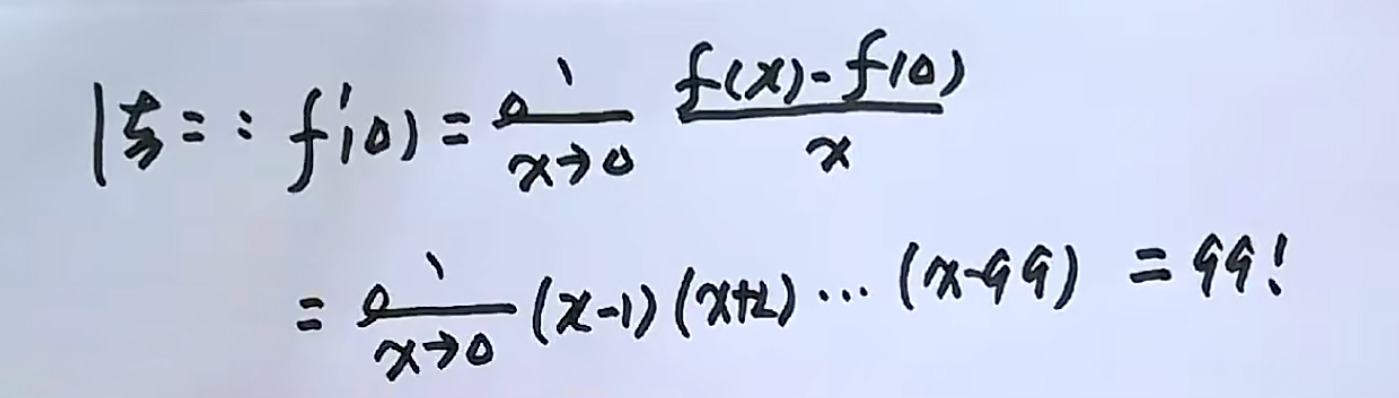 法二: f'(0) = lim x→0 (f(x)-f(0))/x
= lim x→0 (x-1)(x+2)…(x-99) = 99!